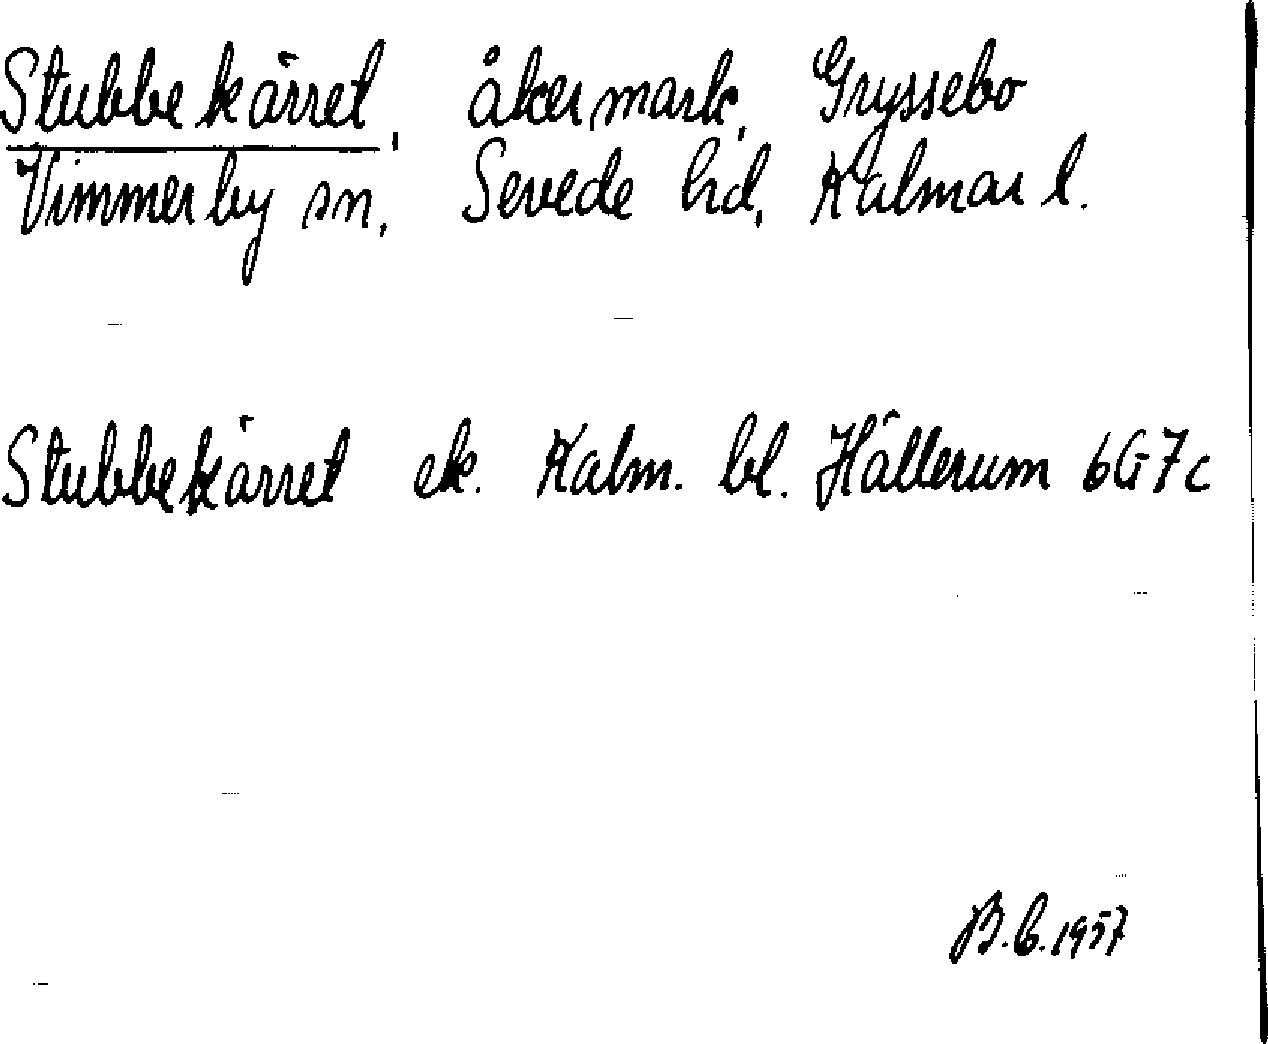 Stubbekärret, åkermark, Gryssebo
Vimmerby sn, Sevede hd, Kalmar l.
Stubbekärret ek. Kalm. bl. Hällerum 6G7c
B.G.1957